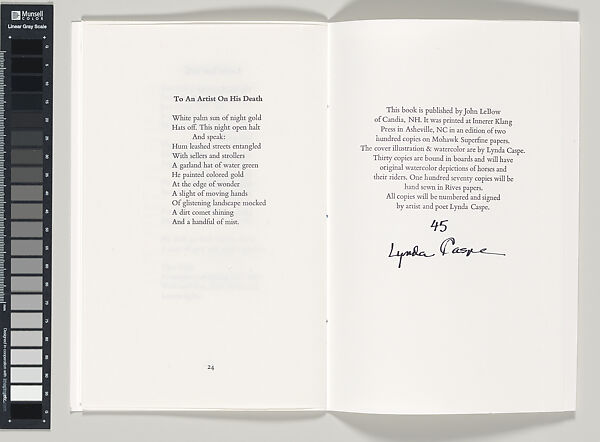 Munsell
COLOR
Linear Gray Scale
To An Artist On His Death
White palm sun of night gold
Hats off. This night open halt
And speak:
Hum leashed streets entangled
With sellers and strollers
A garland hat of water green
He painted colored gold
At the edge of wonder
A slight of moving hands
Of glistening landscape mocked
A dirt comet shining
And a handful of mist.
24
This book is published by John LeBow
of Candia, NH. It was printed at Innerer Klang
Press in Asheville, NC in an edition of two
hundred copies on Mohawk Superfine papers.
The cover illustration & watercolor are by Lynda Caspe.
Thirty copies are bound in boards and will have
original watercolor depictions of horses and
their riders. One hundred seventy copies will be
hand sewn in Rives papers.
All copies will be numbered and signed
by artist and poet Lynda Caspe.
45
Lynda Caspe